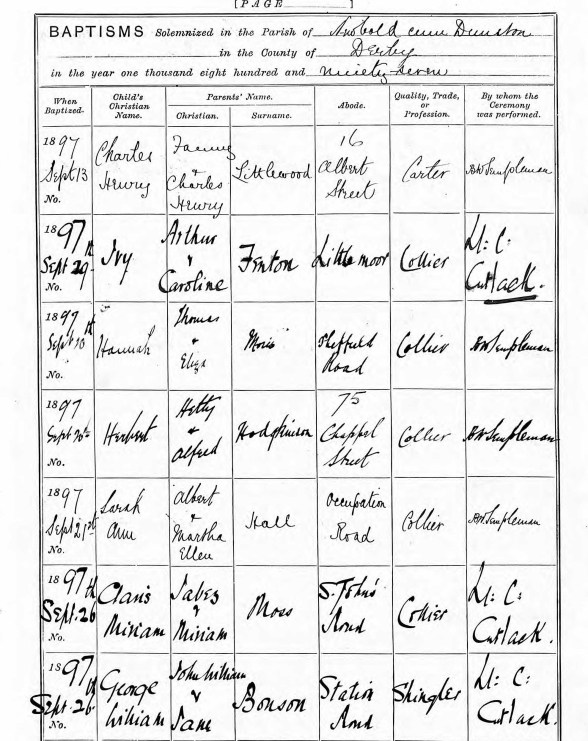 [PAGE ]
BAPTISMS Solemnized in the Parish of Newbold cum Dunston
in the County of Derby
in the year one thousand eight hundred and ninety-seven
When Baptized. Child's Christian Name. Parents' Name. Christian. Surname. Abode. Quality, Trade, or Profession. By whom the Ceremony was performed.
1897 Sept 13 No.
Charles Henry
Fanny & Charles Henry
Littlewood
16 Albert Street
Carter
1897 Sept 19th No.
Ivy
Arthur & Caroline
Fenton
Littlemoor
Collier
Ll: C: Cutlack.
1897 No.
Hannah
Thomas & Eliza
Sheffield Road
Collier
1897 Sept 20th No.
Herbert
Hetty & Alfred
Hodgkinson
75 Chappel Street
Collier
1897 Sept 21st No.
Sarah Ann
Albert & Martha Ellen
Hall
Occupation Road
Collier
1897 Sept. 26th No.
Claris Miriam
Jabez & Miriam
Moss
S. John's Road
Collier
Ll: C: Cutlack.
1897 Sept. 26th No.
George William
John William & Jane
Bonson
Station Road
Shingler
Ll: C: Cutlack.